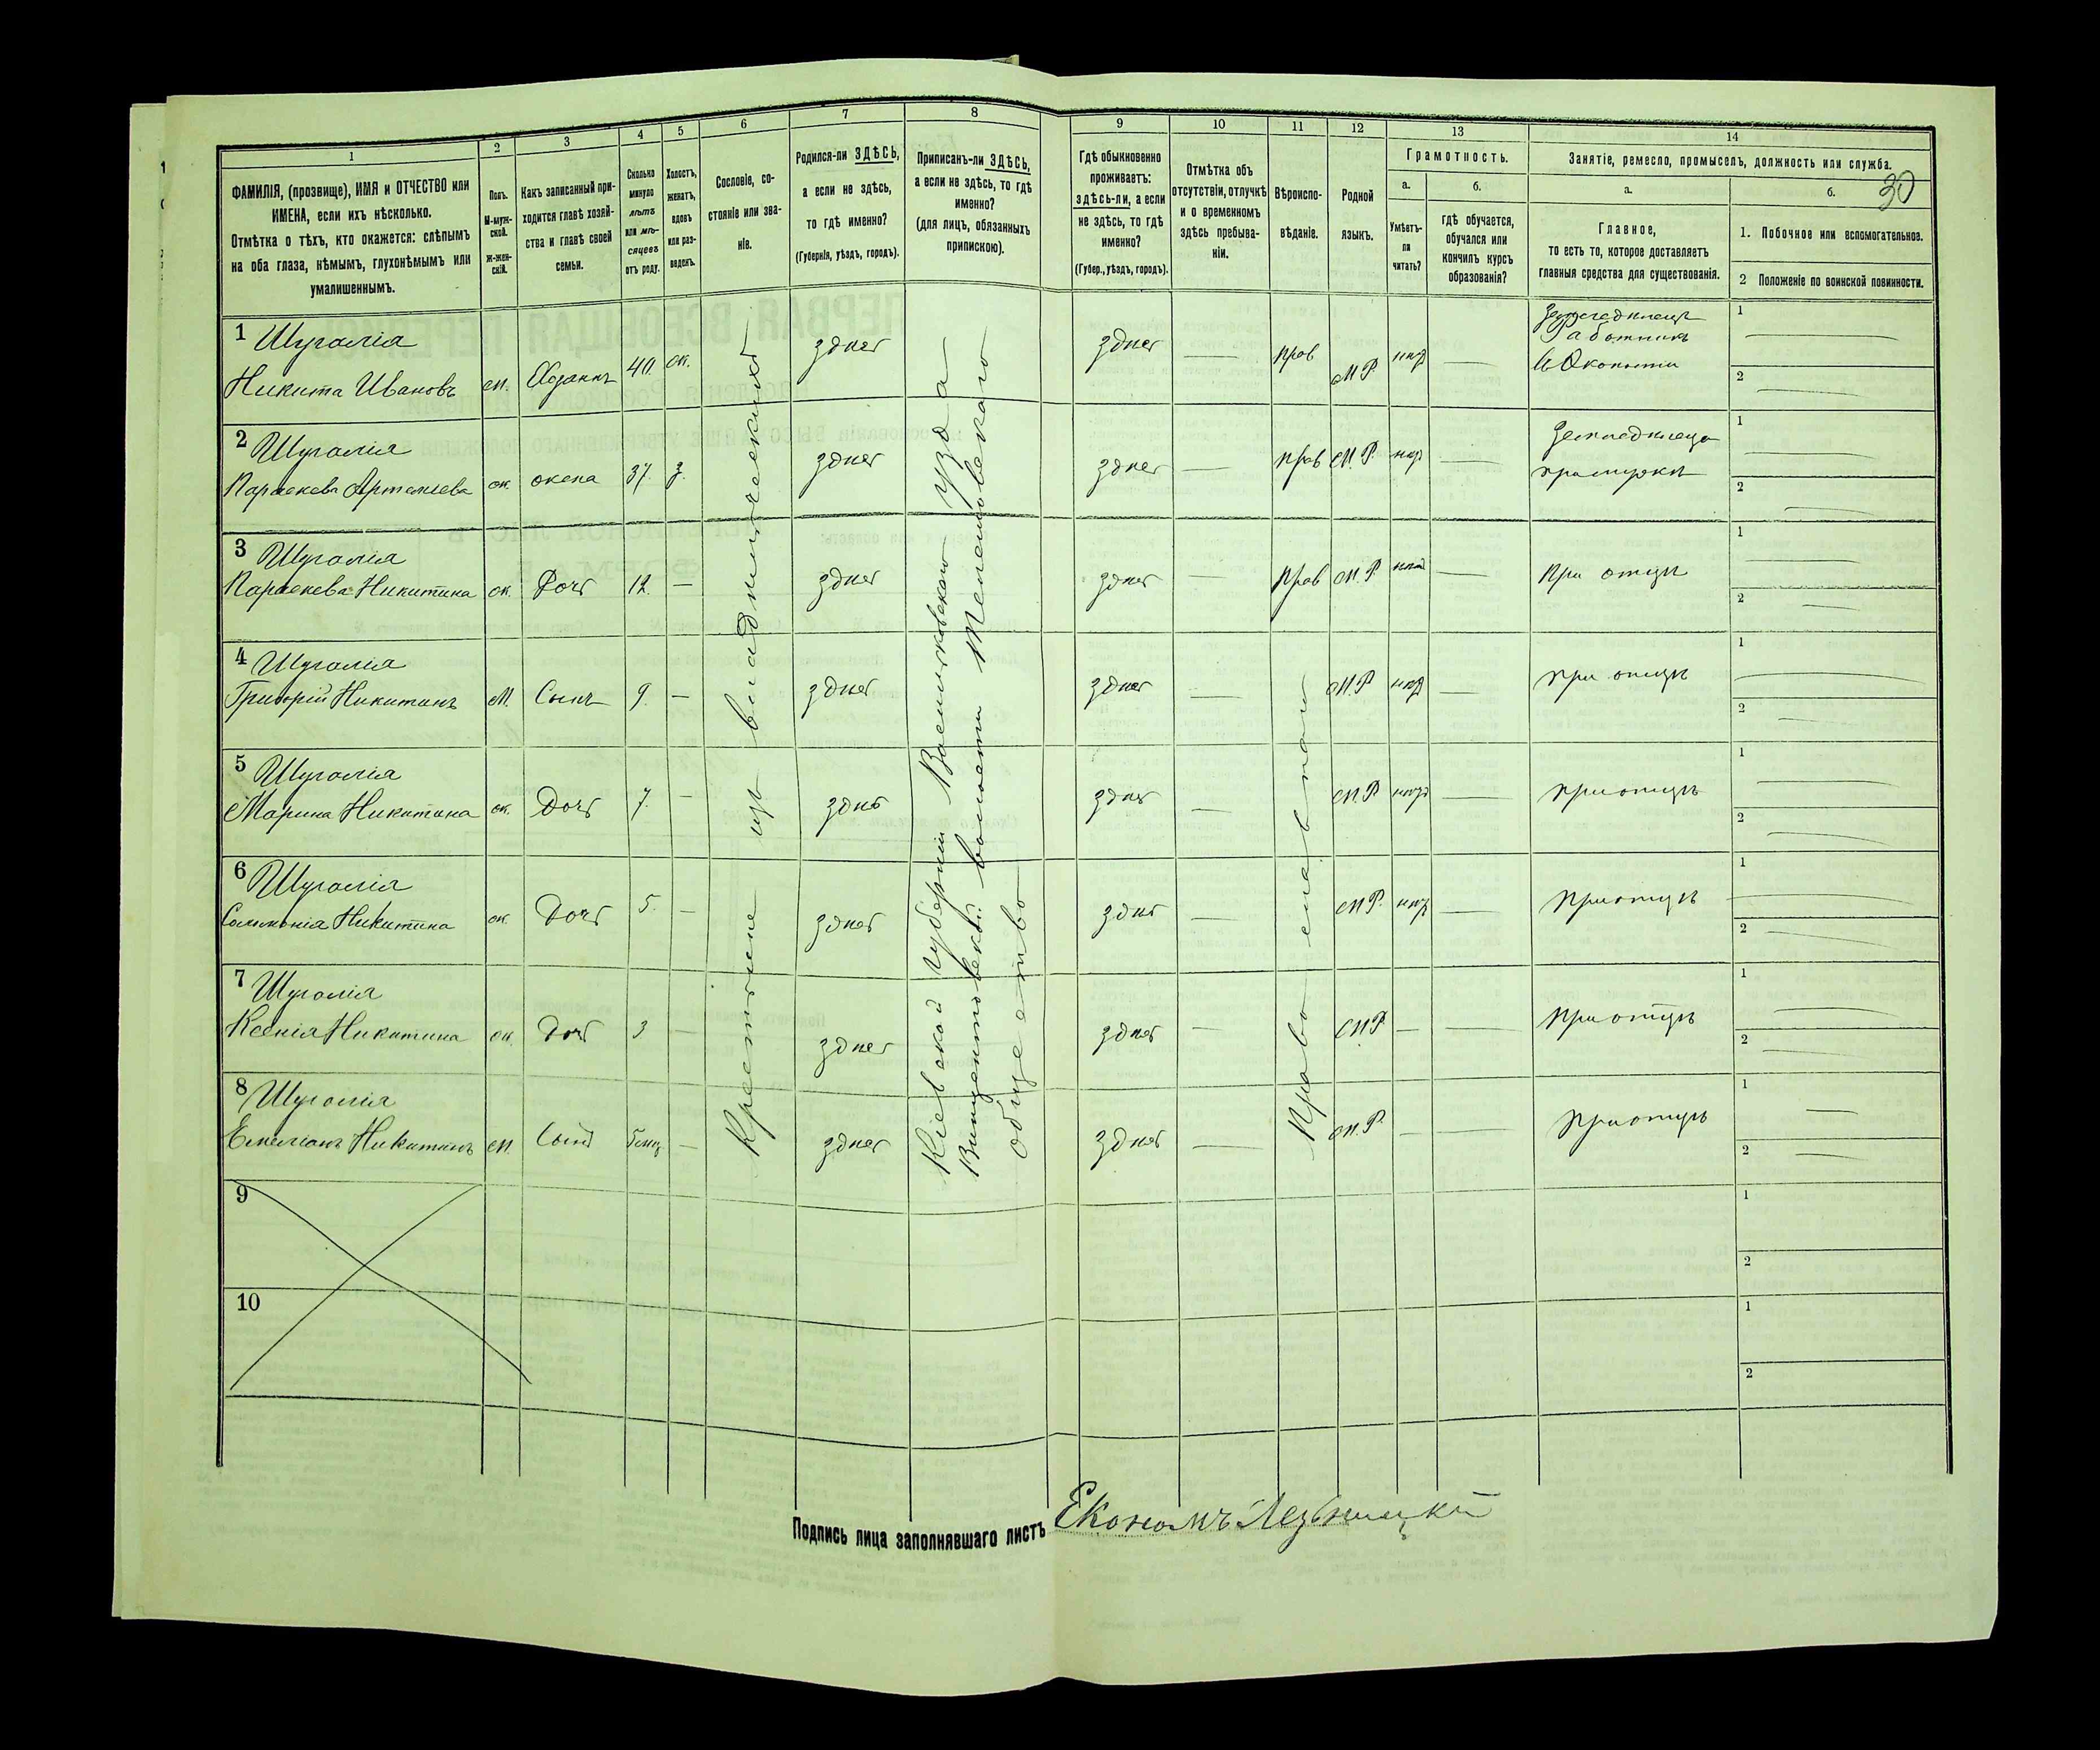 30
1
2
3
4
5
6
7
8
9
10
11
12
13
14
ФАМИЛІЯ, (прозвище), ИМЯ и ОТЧЕСТВО или
ИМЕНА, если ихъ нѣсколько.
Отмѣтка о тѣхъ, кто окажется: слѣпымъ
на оба глаза, нѣмымъ, глухонѣмымъ или
умалишеннымъ.
Полъ.
М-муж-
ской.
Ж-жен-
скій.
Какъ записанный при-
ходится главѣ хозяй-
ства и главѣ своей
семьи.
Сколько
минуло
лѣтъ
или мѣ-
сяцевъ
отъ роду.
Холостъ,
женатъ,
вдовъ
или раз-
веденъ.
Сословіе, со-
стояніе или зва-
ніе.
Родился-ли ЗДѢСЬ,
а если не здѣсь,
то гдѣ именно?
(Губернія, уѣздъ, городъ).
Приписанъ-ли ЗДѢСЬ,
а если не здѣсь, то гдѣ
именно?
(для лицъ, обязанныхъ
припискою).
Гдѣ обыкновенно
проживаетъ:
здѣсь-ли, а если
не здѣсь, то гдѣ
именно?
(Губер., уѣздъ, городъ).
Отмѣтка объ
отсутствіи, отлучкѣ
и о временномъ
здѣсь пребыва-
ніи.
Вѣроиспо-
вѣданіе.
Родной
языкъ.
Грамотность.
а.
Умѣетъ-
ли
читать?
б.
гдѣ обучается,
обучался или
кончилъ курсъ
образованія?
Занятіе, ремесло, промыселъ, должность или служба.
а.
Главное,
то есть то, которое доставляетъ
главныя средства для существованія.
б.
1. Побочное или вспомогательное.
2 Положеніе по воинской повинности.
1 Шугалія
Никита Ивановъ м. Хозяинъ 40 ж. здѣсь здѣсь — прав М.Р. —
Работникъ
1 —
2 —
2 Шугалія
Параскева Артемьева ж. жена 37. з. здѣсь здѣсь — прав М.Р. —
1 —
2 —
3 Шугалія
Параскева Никитина ж. Дочь 12. — здѣсь здѣсь — прав М.Р. — При отцѣ
1 —
2 —
4 Шугалія
Григорій Никитинъ м. Сынъ 9. — здѣсь здѣсь — М.Р. — При отцѣ
1 —
2 —
5 Шугалія
Марина Никитина ж. Дочь 7. — здѣсь здѣсь — М.Р. — При отцѣ
1 —
2 —
6 Шугалія
Никитина ж. Дочь 5. — здѣсь здѣсь — М.Р. — При отцѣ
1 —
2 —
7 Шугалія
Ксенія Никитина ж. Дочь 3 — здѣсь здѣсь — М.Р. — — При отцѣ
1 —
2 —
8 Шугалія
Емеліанъ Никитинъ м. Сынъ 5 мц — здѣсь здѣсь — М.Р. — — При отцѣ
1 —
2 —
Крестьяне изъ владѣльческихъ
Кіевской губерніи Васильковскаго уѣзда
Винцентовской волости
общество
Православнаго
9
1
2
10
1
2
Подпись лица заполнявшаго листъ Економъ